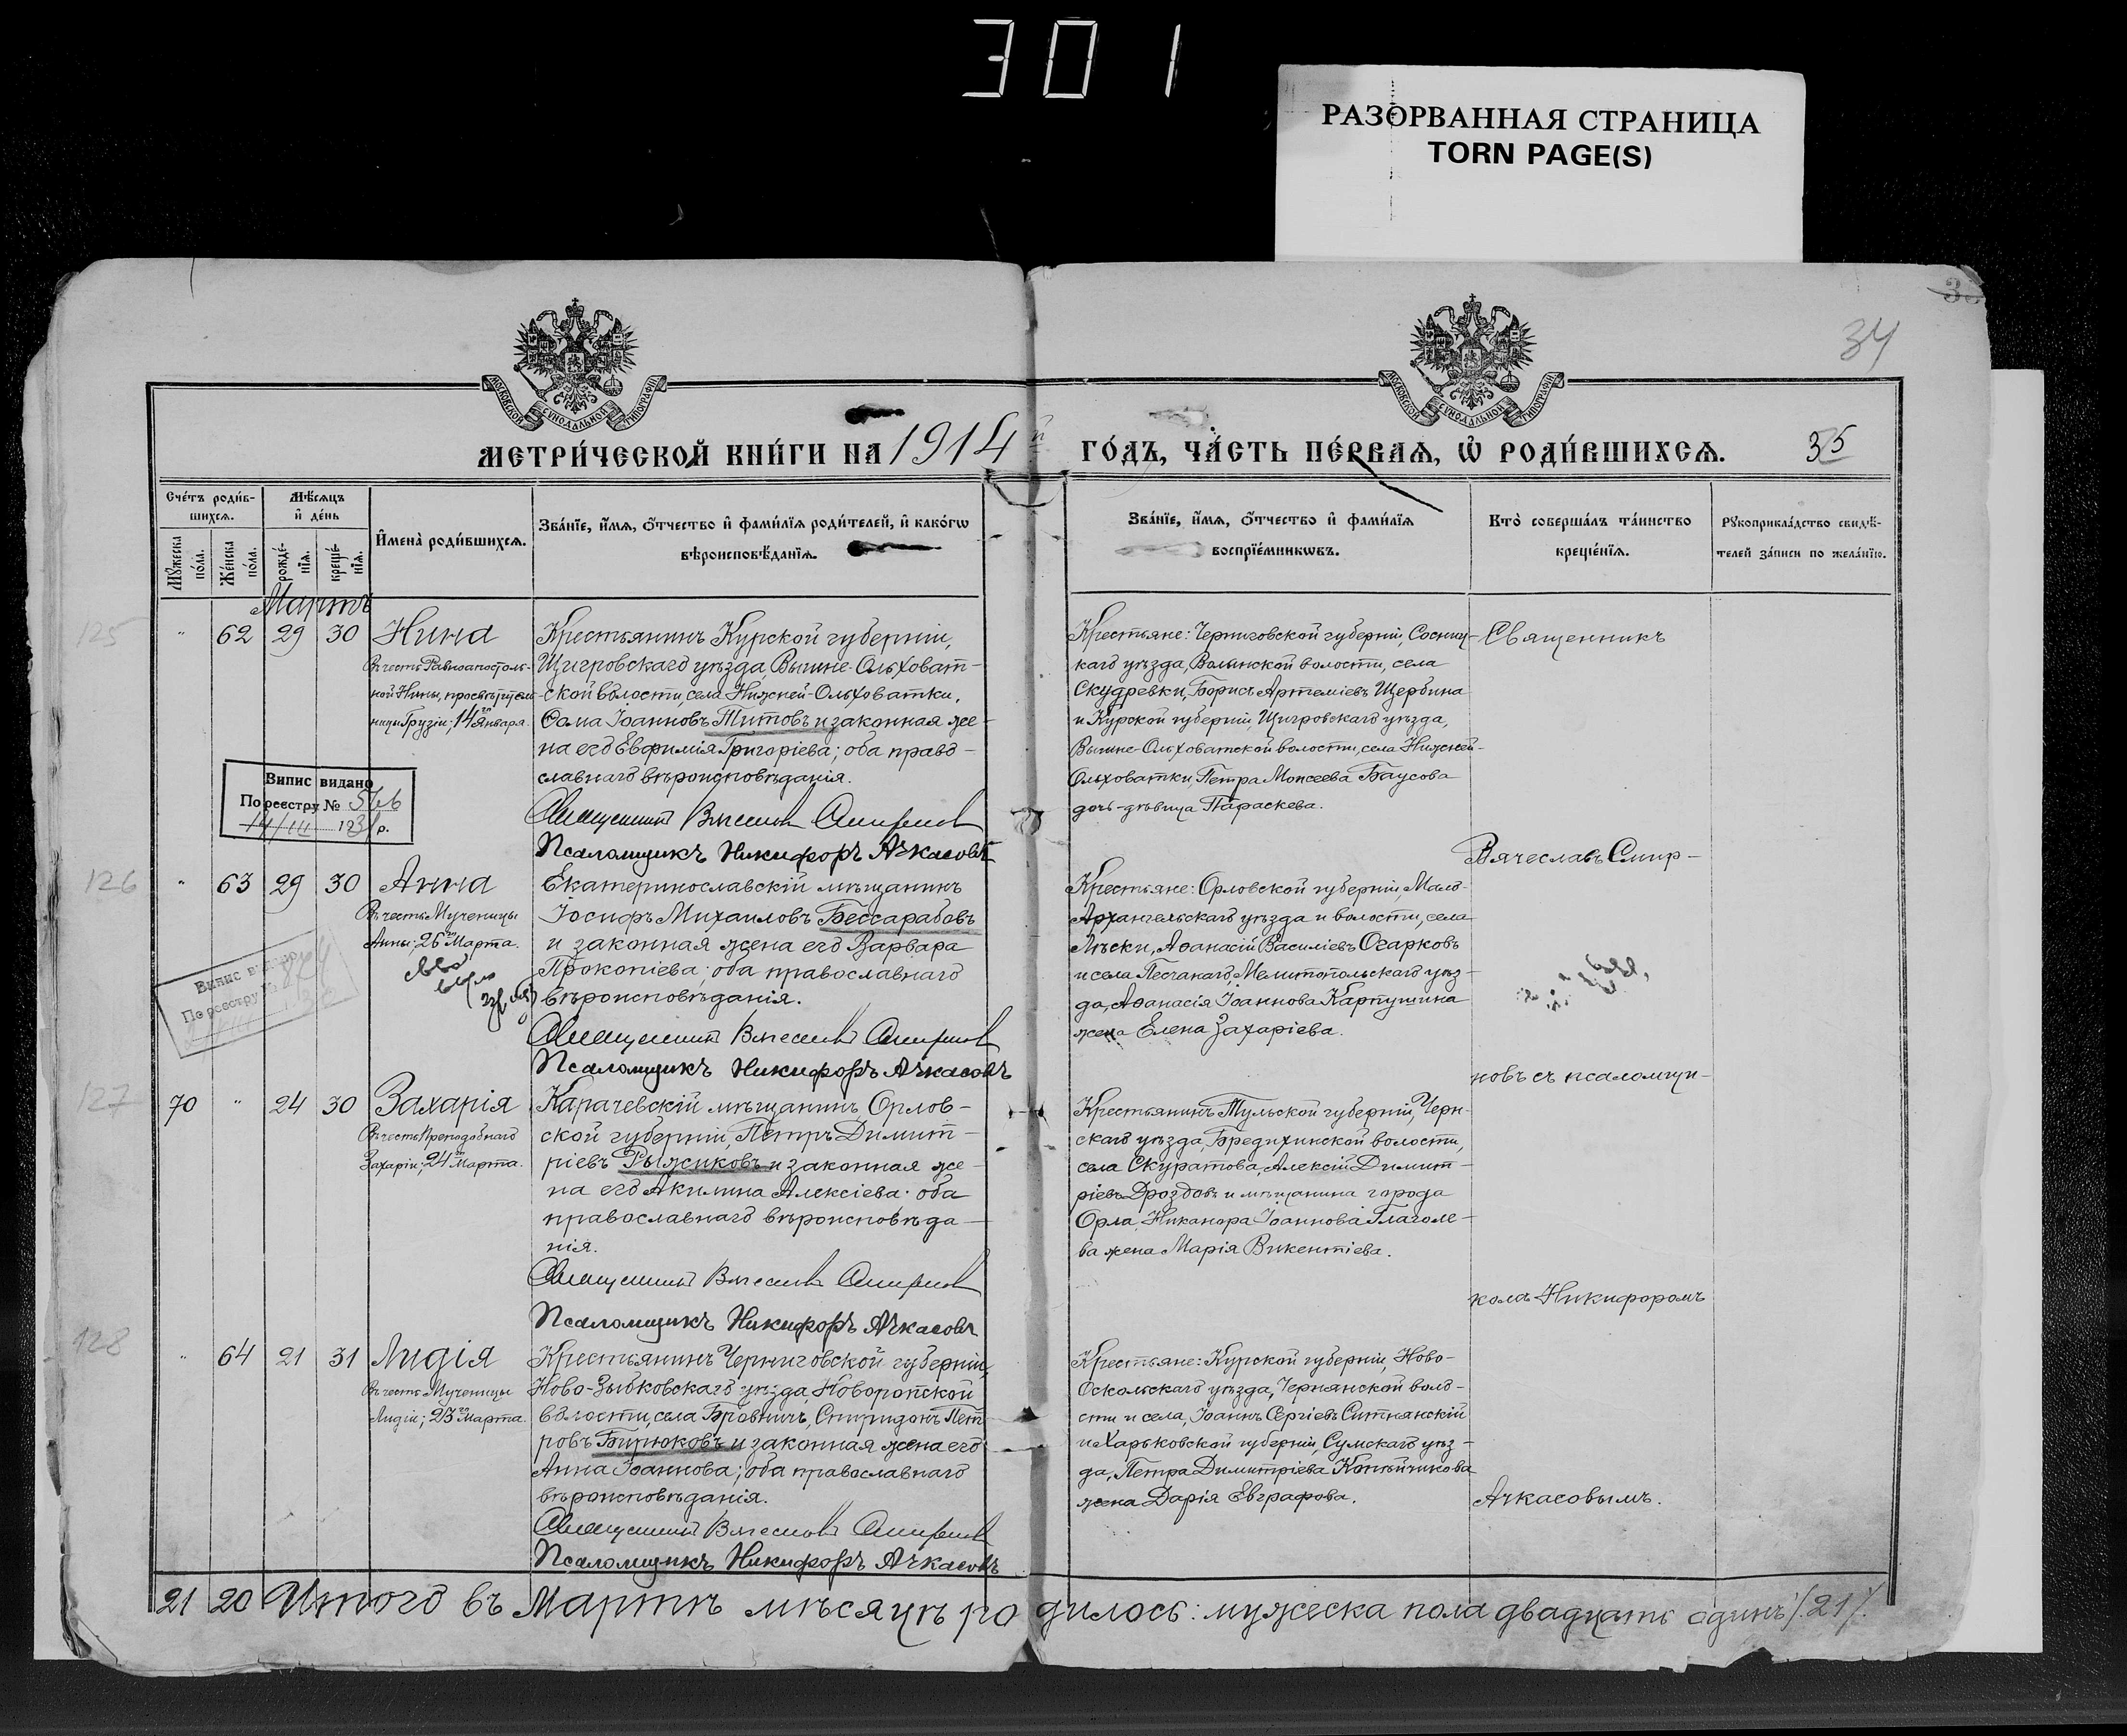 301
РАЗОРВАННАЯ СТРАНИЦА
TORN PAGE(S)
34
МОСКОВСКОЙ СУНОДАЛЬНОЙ ТИПОГРАФІИ
МОСКОВСКОЙ СУНОДАЛЬНОЙ ТИПОГРАФІИ
МЕТРИ́ЧЕСКОЙ КНИ́ГИ НА 1914 й
ГО́ДЪ, ЧА́СТЬ ПЕ́РВАѦ, Ѡ РОДИ́ВШИХСѦ.
35
Сче́тъ роди́в-
шихсѧ.
Мѣ́сѧцъ
и҆ де́нь
Мꙋ́жеска по́ла.
Же́нска по́ла.
рожде́-
нїѧ.
креще́-
нїѧ.
И҆мена̀ роди́вшихсѧ.
Зва́нїе, и҆́мѧ, ѻ҆́тчество и҆ фами́лїѧ роди́телей, и҆ како́гѡ
вѣроисповѣ́данїѧ.
Зва́нїе, и҆́мѧ, ѻ҆́тчество и҆ фами́лїѧ
воспрїе́мникѡвъ.
Кто̀ соверша́лъ та́инство
креще́нїѧ.
Рꙋкоприкла́дство свидѣ́-
телей за́писи по жела́нїю.
Мартъ
125
" 62 29 30 Нина
Въ честь Равноапостоль-
ной Нины, просвѣтитель-
ницы Грузіи; 14го Января.
Випис видано
По реєстру № 566
14/III 1931 р.
Крестьянинъ Курской губерніи,
Щигровскаго уѣзда, Вышне-Ольховат-
ской волости, села Нижней-Ольховатки,
Ѳома Іоанновъ Титовъ и законная же-
на его Евфимія Григоріева; оба право-
славнаго вѣроисповѣданія.
Священникъ Вячеславъ Смирновъ
Псаломщикъ Никифоръ Ачкасовъ
Крестьяне: Черниговской губерніи, Сосниц-
каго уѣзда, Волынской волости, села
Скудревки, Борисъ Артеміевъ Щербина
и Курской губерніи, Щигровскаго уѣзда,
Вышне-Ольховатской волости, села Нижней-
Ольховатки, Петра Моисеева Баусова
дочь-дѣвица Параскева.
Священникъ
Вячеславъ Смир-
126
" 63 29 30 Анна
Въ честь Мученицы
Анны; 26го Марта.
Випис видано
По реєстру № 874
Екатеринославскій мѣщанинъ
Іосифъ Михаиловъ Бессарабовъ
и законная жена его Варвара
Прокопіева; оба православнаго
вѣроисповѣданія.
Священникъ Вячеславъ Смирновъ
Псаломщикъ Никифоръ Ачкасовъ
Крестьяне: Орловской губерніи, Мало-
Архангельскаго уѣзда и волости, села
Лѣски, Аѳанасій Василіевъ Огарковъ
и села Песчанаго, Мелитопольскаго уѣз-
да, Аѳанасія Іоаннова Картушина
жена Елена Захаріева.
новъ съ псаломщи-
127
70 " 24 30 Захарія
Въ честь Преподобнаго
Захаріи; 24го Марта.
Карачевскій мѣщанинъ, Орлов-
ской губерніи, Петръ Димит-
ріевъ Рыжиковъ и законная же-
на его Акилина Алексіева; оба
православнаго вѣроисповѣда-
нія.
Священникъ Вячеславъ Смирновъ
Псаломщикъ Никифоръ Ачкасовъ
Крестьянинъ Тульской губерніи, Черн-
скаго уѣзда, Бредихинской волости,
села Скуратова, Алексій Димит-
ріевъ Дроздовъ и мѣщанина города
Орла, Никанора Іоаннова Глаголе-
ва жена Марія Викентіева.
комъ Никифоромъ
128
" 64 21 31 Лидія
Въ честь Мученицы
Лидіи; 23го Марта.
Крестьянинъ Черниговской губерніи,
Ново-Зыбковскаго уѣзда, Новоропской
волости, села Бровничъ, Спиридонъ Пет-
ровъ Бирюковъ и законная жена его
Анна Іоаннова; оба православнаго
вѣроисповѣданія.
Священникъ Вячеславъ Смирновъ
Псаломщикъ Никифоръ Ачкасовъ
Крестьяне: Курской губерніи, Ново-
Оскольскаго уѣзда, Чернянской воло-
сти и села, Іоаннъ Сергіевъ Ситнянскій
и Харьковской губерніи, Сумскаго уѣз-
да, Петра Димитріева Копѣйчикова
жена Дарія Евграфова.
Ачкасовымъ.
21 20 Итого въ Мартѣ мѣсяцѣ родилось: мужеска пола двадцать одинъ /.21/.